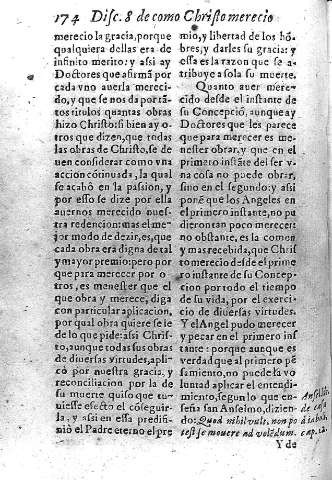 174 Disc. 8 de como Christo merecio
merecio la gracia, porque
qualquiera dellas era de
infinito merito: y assi ay
Doctores que afirmã por
cada vno auerla mereci-
do, y que se nos da por tã-
tos titulos quantas obras
hizo Christo: si bien ay o-
tros que dizen, que todas
las obras de Christo, se de
uen considerar como vna
accion cõtinuada, la qual
se acabò en la passion, y
por esso se dize por ella
auernos merecido nues-
tra redencion: mas el me-
jor modo de dezir, es, que
cada obra era digna de tal
y mayor premio; pero por
que para merecer por o-
tros, es menester que el
que obra y merece, diga
con particular aplicacion,
por qual obra quiere se le
dè lo que pide: assi Chris-
to, aunque todas sus obras
de diuersas virtudes, aplicò
por nuestra gracia, y
reconciliacion por la de
su muerte quiso que tu-
uiesse efecto el cõseguir-
la, y assi en essa predifi-
niò el Padre eterno el pre
mio, y libertad de los hõ-
bres, y darles su gracia: y
essa es la razon que se a-
tribuye a sola su muerte.
Quanto auer mere-
cido desde el instante de
su Concepciõ, aunque ay
Doctores que les parece
que para merecer es me-
nester obrar, y que en el
primero instãte del ser v-
na cosa no puede obrar,
sino en el segundo: y assi
ponẽ que los Angeles en
el primero instante, no pu
dieron tan poco merecer:
no obstante, es la comun
y mas recebida, que Chris
to merecio desde el prime
ro instante de su Concep-
cion por todo el tiempo
de su vida, por el exerci-
cio de diuersas virtudes.
Y el Angel pudo merecer
y pecar en el primero ins
tante: porque aunque es
verdad que al primero pẽ
samiento, no puede la vo
luntad aplicar el entendi-
miento, segun lo que en-
seña san Anselmo, dizien-
do: Quod nihil vult, non po
test se mouere ad volẽdum.
Ansel. lib.
de casu
diaboli
cap. 12.
Y de